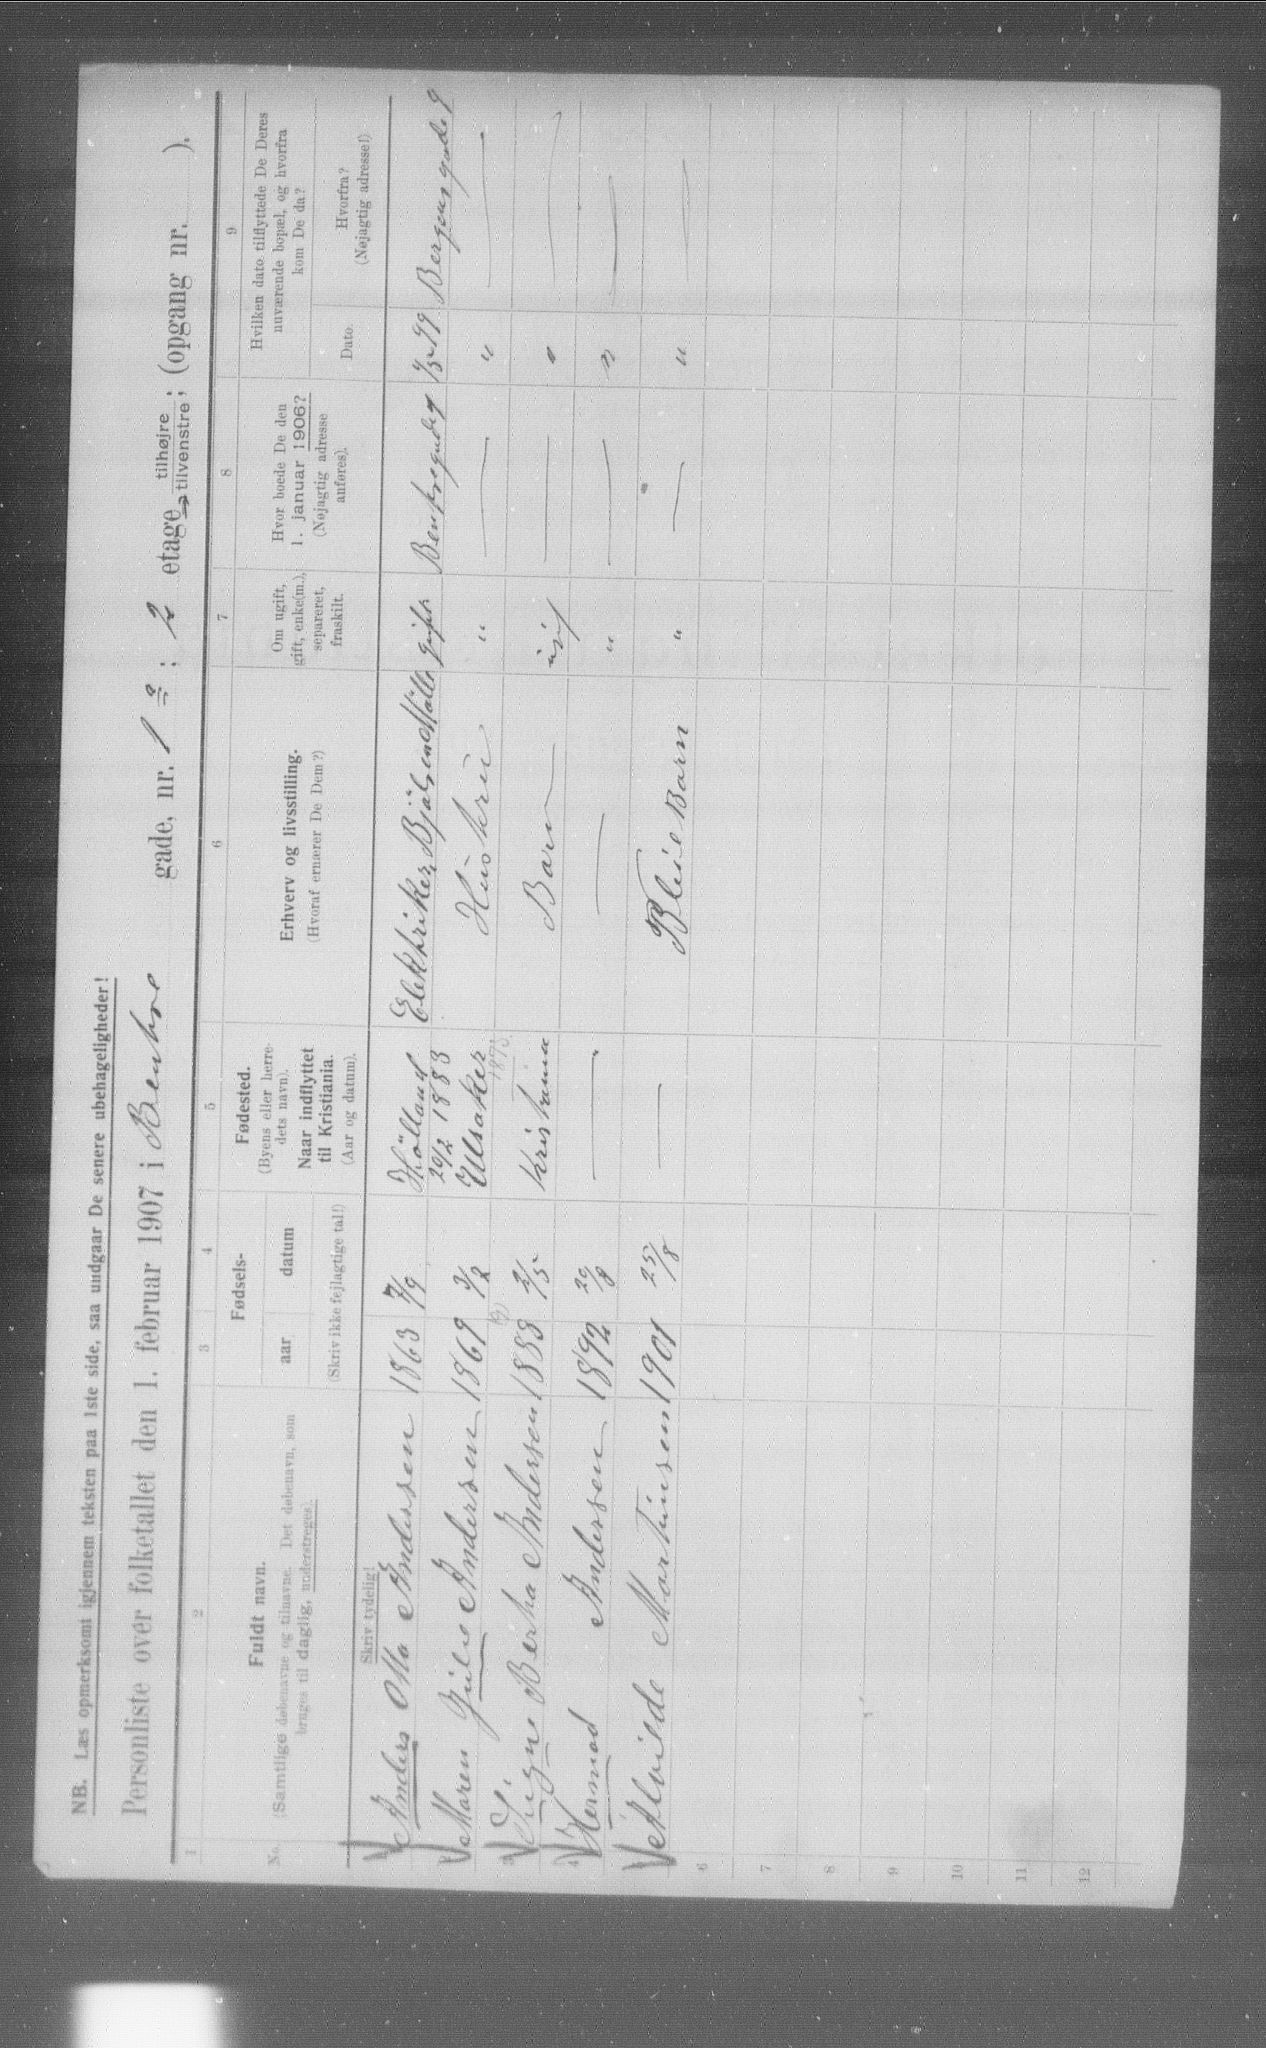 NB. Læs opmerksomt igjennem teksten paa 1ste side, saa undgaar De senere ubehageligheder!
Personliste over folketallet den 1. februar 1907 i Bentse gade, nr. 1 ; 2 etage tilhøjre tilvenstre; (opgang nr. ).
1 2 3 4 5 6 7 8 9
No.
Fuldt navn.
(Samtlige døbenavne og tilnavne. Det døbenavn, som
bruges til daglig, understreges).
Fødsels-
aar datum
(Skriv ikke fejlagtige tal!)
Fødested.
(Byens eller herre-
dets navn).
Naar indflyttet
til Kristiania.
(Aar og datum).
Erhverv og livsstilling.
(Hvoraf ernærer De Dem?)
Om ugift,
gift, enke(m.),
separeret,
fraskilt.
Hvor boede De den
1. januar 1906?
(Nøjagtig adresse
anføres).
Hvilken dato tilflyttede De Deres
nuværende bopæl, og hvorfra
kom De da?
Dato.
Hvorfra?
(Nøjagtig adresse!)
Skriv tydelig!
Anders Otto Anderssen 1863 7/9 Høland 20/2 1883 Elektriker gift
2 Maren Julie Andersen 1869 Ullsaker 1875 Hustru "  — " —
3 Signe Bertha Anderssen 1883 2/5 Kristiania Barn — —
4 Hermod Anderssen 1892 29/8 — " — " — " —
Martinsen 1901 25/8 — Pleie Barn " — " —
6
7
8
9
10
11
12